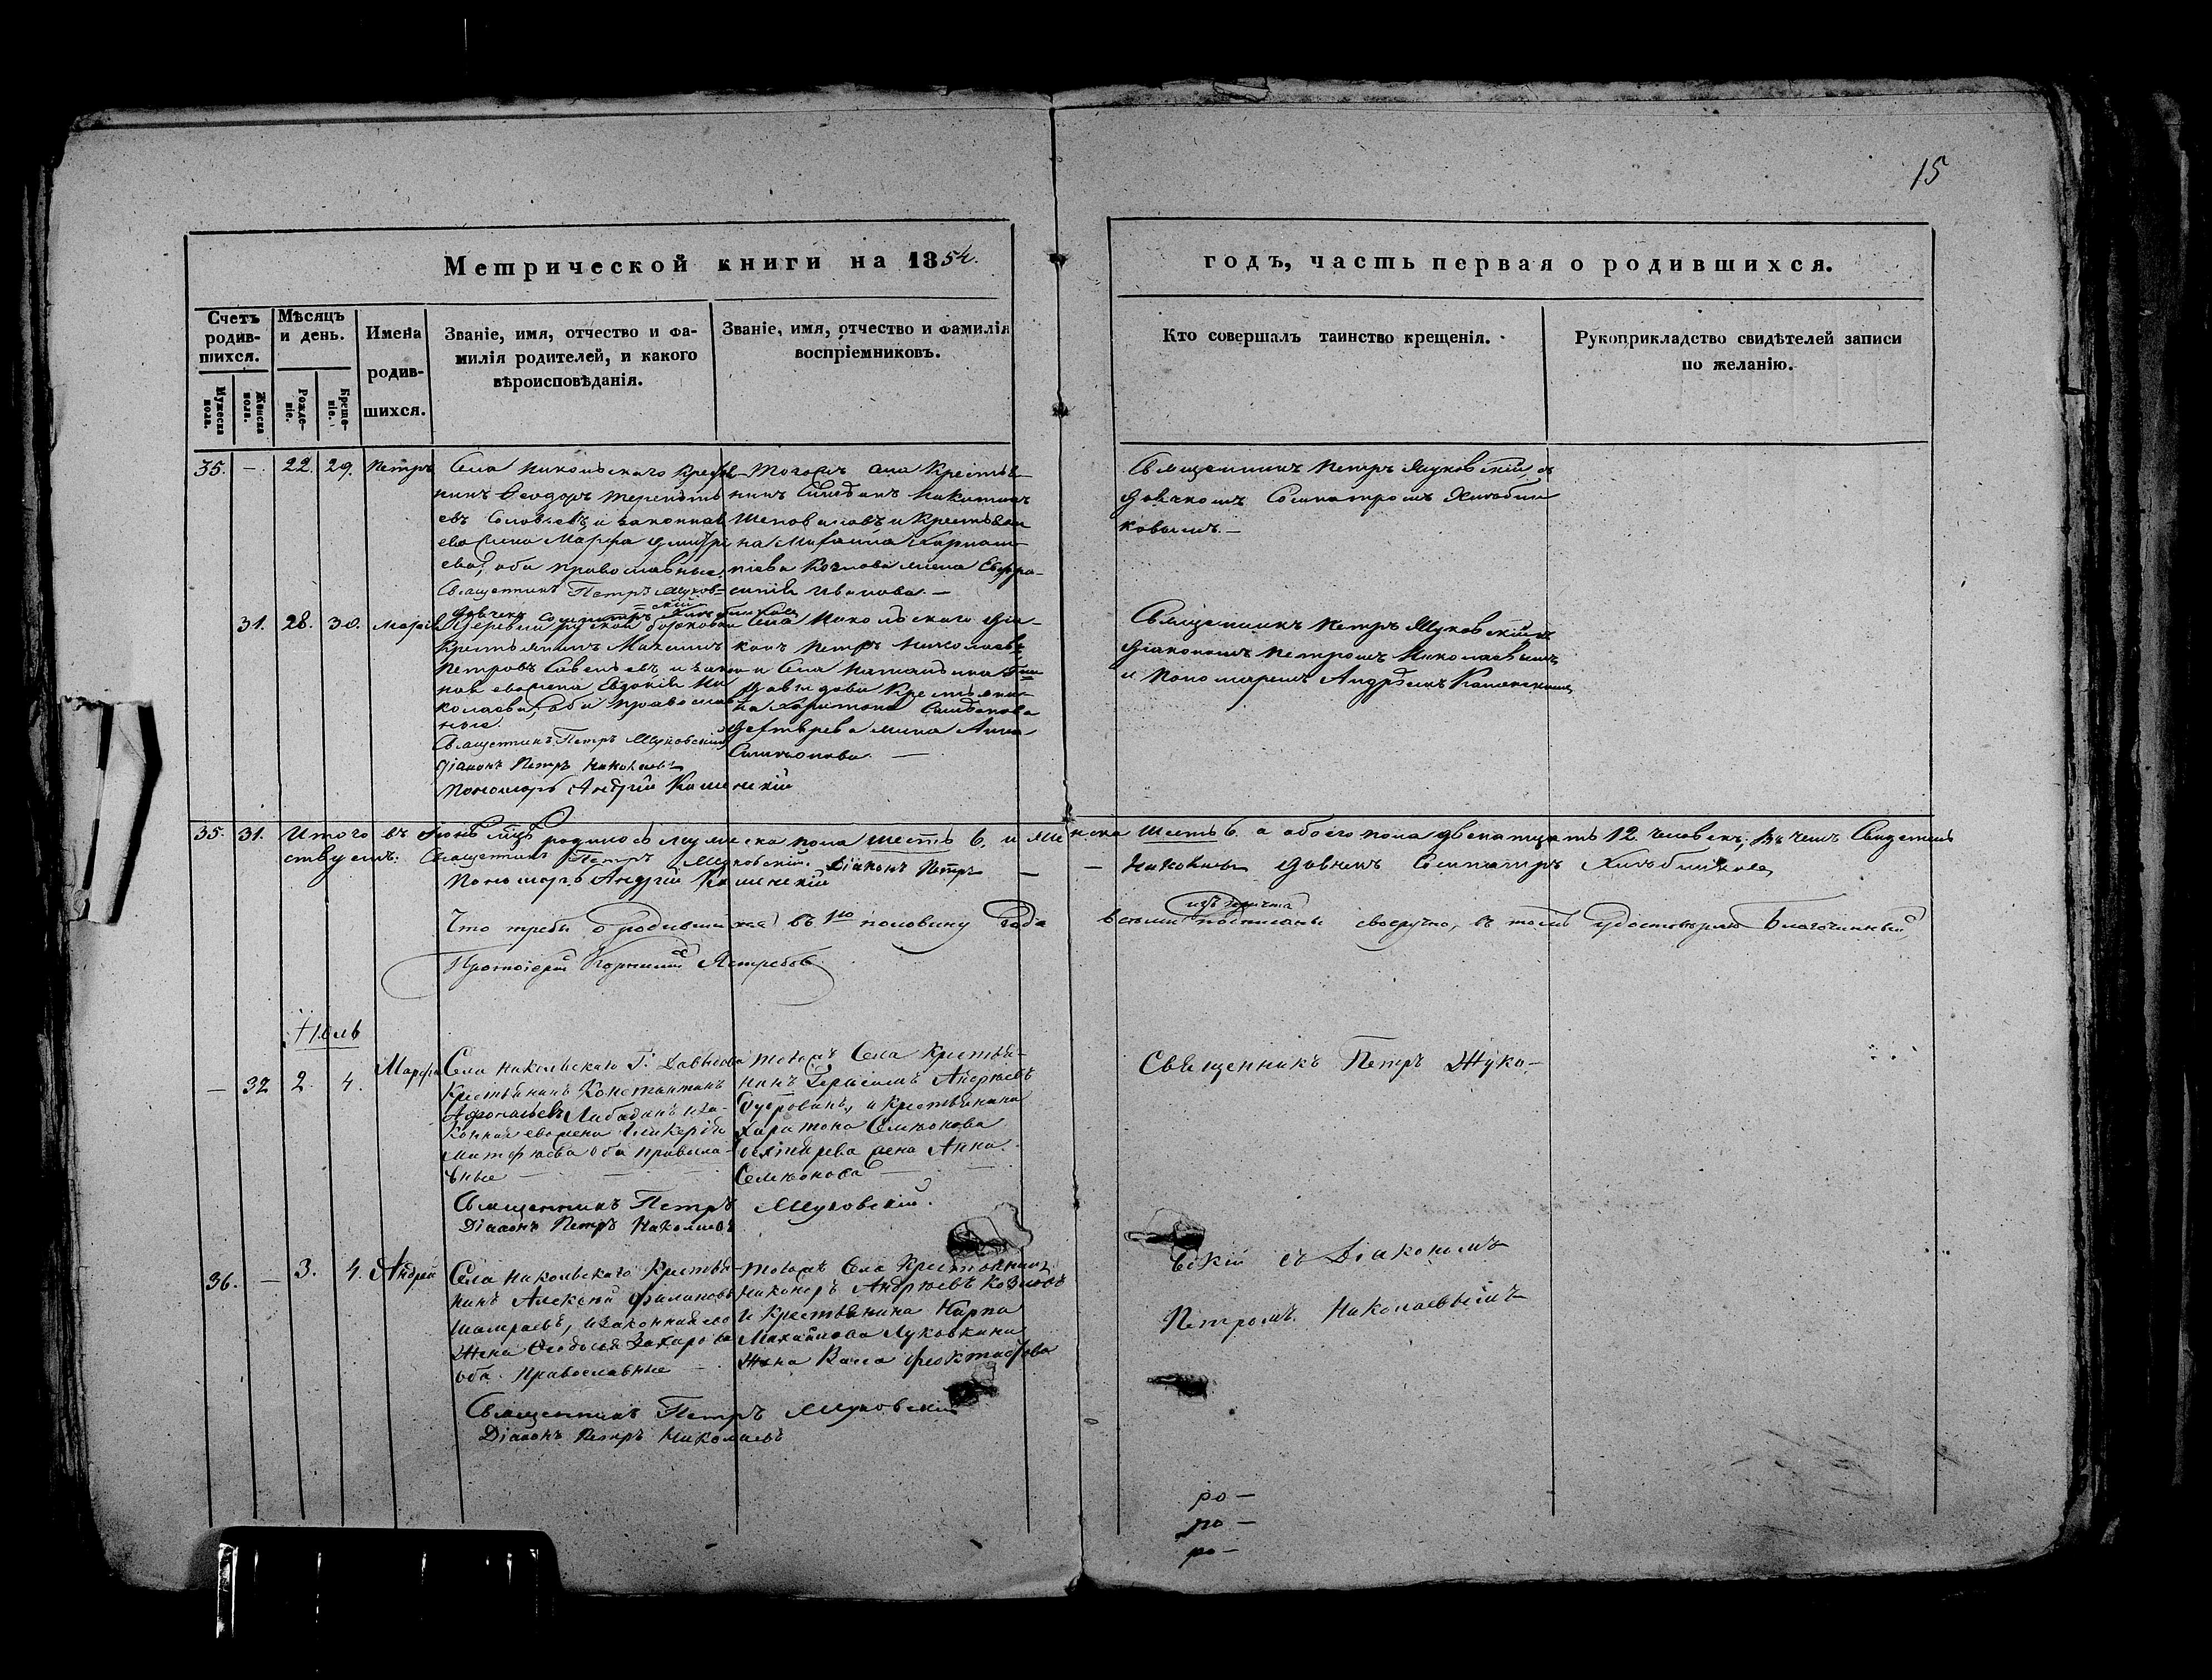 15
Метрической книги на 1854.
годъ, часть первая о родившихся.
Счетъ родив-
шихся.
Мужеска пола.
Женска пола.
Мѣсяцъ
и день.
Рожде-
ніе.
Креще-
ніе.
Имена
родив-
шихся.
Званіе, имя, отчество и фа-
милія родителей, и какого
вѣроисповѣданія.
Званіе, имя, отчество и фамилія
воспріемниковъ.
Кто совершалъ таинство крещенія.
Рукоприкладство свидѣтелей записи
по желанію.
35. — 22. 29. Петръ
Села Никольскаго Кресть-
нинъ Ѳеодоръ Терентъ
евъ Соловьевъ, и законная
его жена Марфа Дмитрі
ева, оба православные.
Священникъ Петръ Жуков-
скій
Дьячекъ Сосипатръ Хлѣбниковъ
Тогожъ села Крестья-
нинъ Никитинъ
Шаповаловъ и Крестьяни
на Михаила
жена Евфро-
синія Иванова. —
Священникъ Петръ Жуковскій съ
Дьячкомъ Сосипатромъ Хлѣбни
ковымъ. —
31. 28. 30. Марія
Деревни
Крестьянинъ
Петровъ Савельевъ и закон
ная его жена Евдокія Ни
колаева, оба православ
ные.
Священникъ Петръ Жуковскій
Діаконъ Петръ Николаевъ
Пономарь Андрей Каменскій
Села Никольскаго Діа-
конъ Петръ Николаевъ
и Села
Давыдова Крестьяни-
на Харитона Симеонова
Дегтярева жена Анна
Симеонова. —
Священникъ Петръ Жуковскій съ
Діакономъ Петромъ Николаевымъ
и Пономаремъ Андреемъ Каменскимъ
35. 31. Итого въ Іюнѣ мцѣ родилось мужеска пола шесть 6. и женска шесть 6. а обоего пола двенатцать 12. человекъ; въ чемъ Свидетель
ствуемъ: Священникъ Петръ Жуковскій. Діаконъ Петръ — — Николаевъ Дьячекъ Сосипатръ Хлѣбниковъ
Пономарь Андрей Каменскій
Что требы о родившихся въ 1ю половину Года всеми изъ причта подписаны своеручно, въ томъ удостоверяю Благочинный,
Протоіерей Корнилій Ястребовъ
Іюль
— 32 2. 4. Марфа
Села Никольскаго Г. Давыдова
Крестьянинъ Константинъ
Афонасьевъ Лебадинъ и за-
конная его жена Гликерія
Матфѣева оба правосла-
вные —
Священникъ Петръ Жуковскій.
Діаконъ Петръ Николаевъ
Тогожъ Села Крестья-
нинъ Герасимъ Андреевъ
и Крестьянина
Харитона Семіонова
Дегтярева жена Анна
Семіонова —
Священникъ Петръ Жуко-
36. — 3. 4. Андрей
Села Никольскаго Крестья-
нинъ Алексей Филиповъ
Шамраевъ, и законная его
Жена Ѳеодосья Захарова
оба Православные —
Священникъ Петръ Жуковскій
Діаконъ Петръ Николаевъ
Тогожъ Села Крестьянинъ
Никоноръ Андреевъ Козловъ
и Крестьянина Карпа
Михайлова Луковкина
Жена Васса Феоктистова
вскій съ Діакономъ
Петромъ Николаевымъ
ро —
ро —
ро —